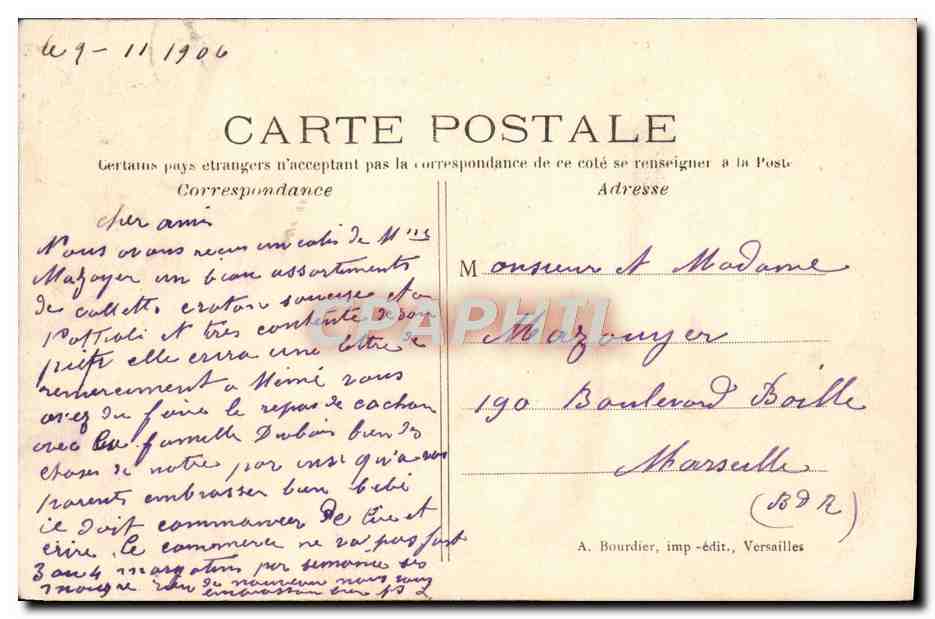 le 9 - 11 1906
CARTE POSTALE
Certains pays etrangers n'acceptant pas la correspondance de ce coté se renseigner à la Poste
Correspondance
Adresse
cher ami
Nous avons recus un colis de Mlle
Mazoyer un beau assortiments
de
et très contente de son
elle crira une lettre de
remerciment a Mimi vous
avez du faire le repas de cochon
avec la famille Dubois bien des
choses de notre par insi qu'a vos
parents embrasser bien bébé
il doit commancer de lire et
crire. Le commerce ne va pas fort
3 ou 4 par semaine
rien de nouveau nous vous
embrasson bien
Monsieur et Madame
Mazouyer
190 Boulevard Baille
Marseille
(B d R)
CPAPHIL
A. Bourdier, imp-édit., Versailles